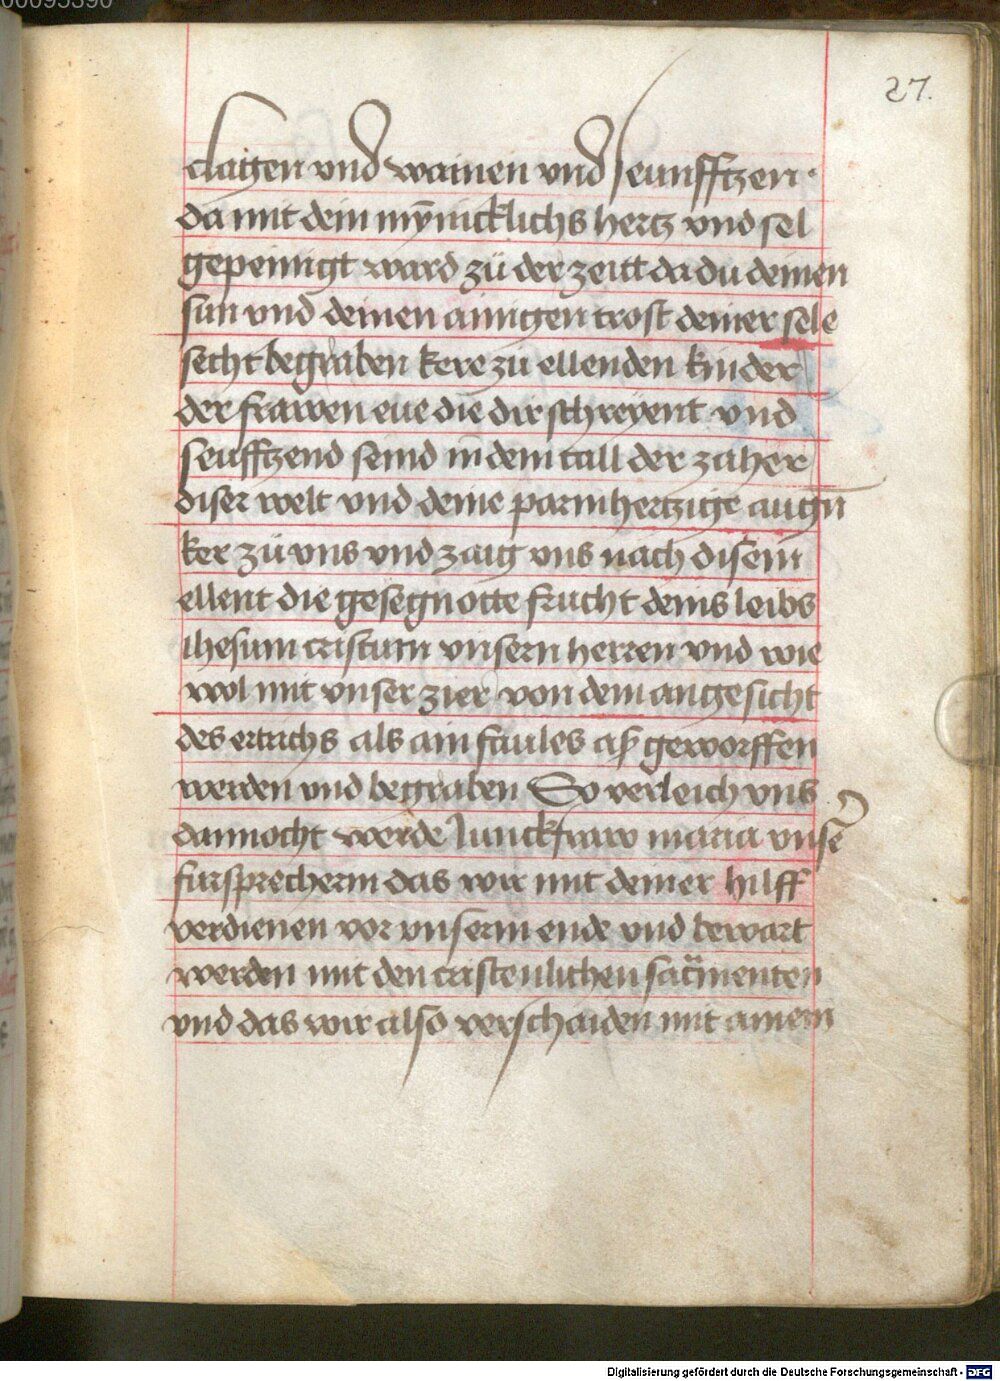 00095390
27.
clagen vnd wainen vnd seunfftzen.
da mit dein mȳnicklichs hertz vnd sel
gepeinigt ward zů der zeitt da du deinen
sun vnd deinen ainigen trost deiner sele
secht begraben kere zu ellenden kinder
der frawen eue die dir schreyent vnd
seufftzend seind in dem tall der zäher
diser welt vnd deine parmhertzige augn̄
ker zů vns vnd zaig vns nach disem
ellent die gesegnotte frucht deins leibs
ihesum cristum vnsern herren vnd wie
wol mit vnser zier von dem angesicht
des ertrichs als ain faules aß geworffen
werden vnd begraben So verleich vns
dannocht werde Junckfraw maria vnser̄
fürsprecherin das wir mit deiner hilff
verdienen vor vnserm ende vnd bewart
werden mit den cristenlichen sacramenten
vnd das wir also verschaiden mit ainem
Digitalisierung gefördert durch die Deutsche Forschungsgemeinschaft - DFG